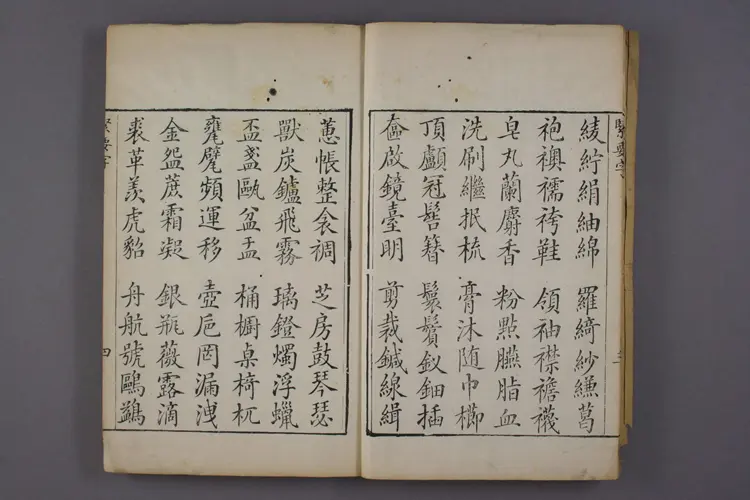 緊要字
綾紵絹紬綿 羅綺紗縑葛
袍襖襦袴鞋 領袖襟襜襪
皂丸蘭麝香 粉點臙脂血
洗刷繼抿梳 膏沐随巾櫛
頂顱冠髻簪 鬟鬢釵鈿插
奩啟鏡臺明 剪裁鍼線緝
蕙帳整衾裯 芝房鼓琴瑟
獸炭鑪飛霧 璃鐙燭浮蠟
盃盞甌盆盂 桶櫥桌椅杌
甕甓頻運移 壺巵罔漏洩
金盌蔗霜凝 銀瓶薇露滴
裘革羨虎貂 舟航號鷗鷁
緊要字
四